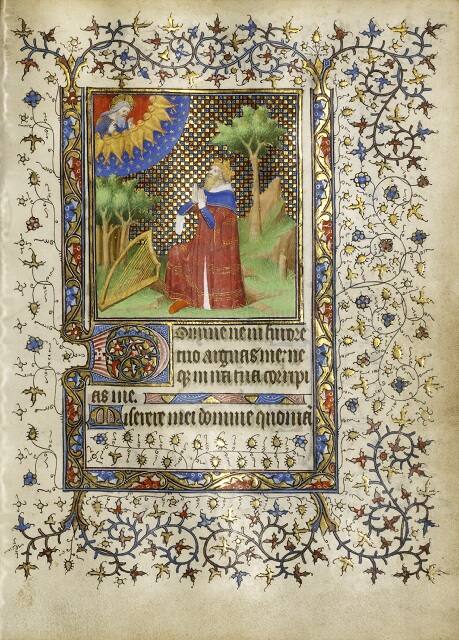 Domine ne in furore
tuo arguas me: ne
q in ira tua corripi
as me.
Miserere mei domine quoniā